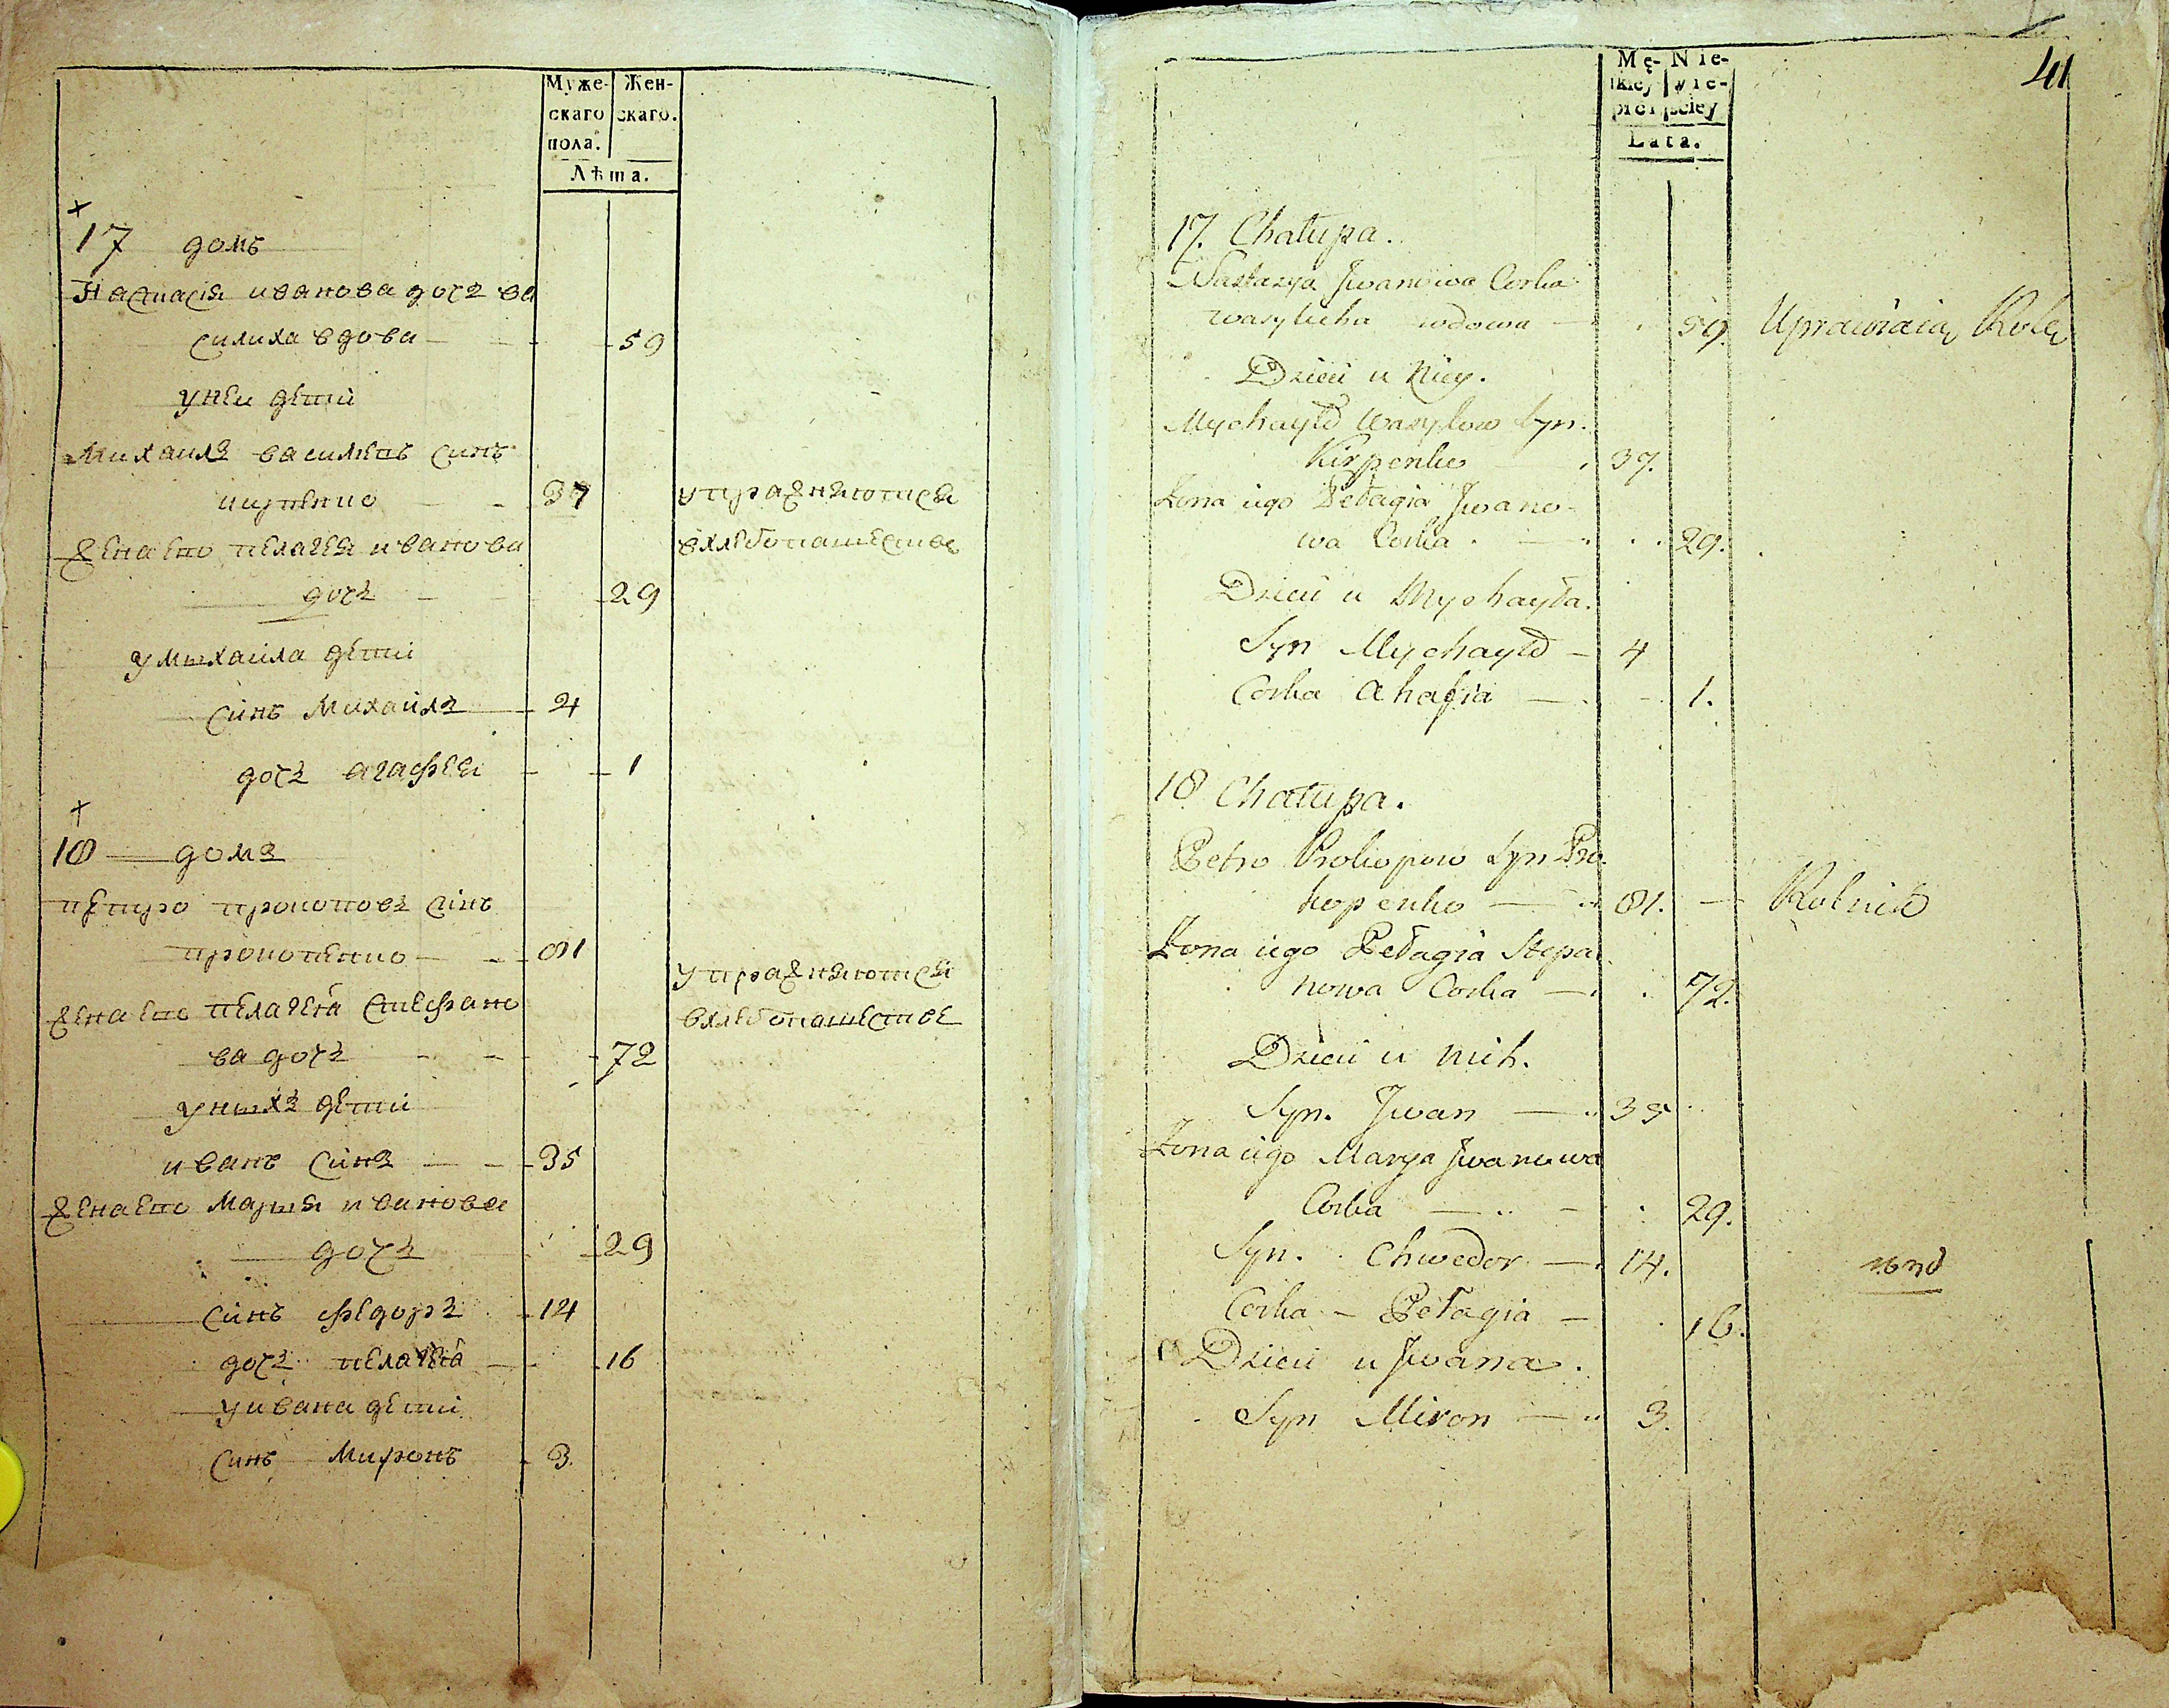 Муже-
скаго
пола.
Жен-
скаго.
Лѣта.
17 домъ
Настасія иванова дочъ ва
силиха вдова 59
унеи дети
Михаилъ василевъ синъ
кирпенко 37
упражняются
Жена его пелагея иванова
вхлебопашестве
дочъ 29
умыхаила дети
синъ Михаилъ 4
дочъ агафея 1
18 домъ
петро прокоповъ сінъ
прокопенко 81
упражняются
Жена его пелагея стефано
вхлебопашестве
ва дочъ 72
уныхъ дети
иванъ синъ 35
Жена его Марыя иванова
дочъ 29
синъ федоръ 14
дочъ пелагея 16
уивана дети
синъ Миронъ 3.
41
Mę-
skiey
płci
Nie-
wie-
sciey
Lata.
17. Chałupa.
Nastazya Jwanowa Corka
wasylicha wdowa 59. Uprawiaią Rolę
Dzieci u Niey.
Mychayło Wasylow Syn.
Kirpenko 37.
Zona iego Pełagia Jwano-
wa Corka 29.
Dzieci u Mychayła.
Syn Mychayło 4
Corka Ahafia 1.
18 Chałupa.
Petro Prokopow Syn Pro
kopenko 81. Rolnik
Zona iego Pełagia Stepa
nowa Corka 72.
Dzieci u nich.
Syn. Jwan 35
Zona iego Marya Jwanowa
Corka 29.
Syn. Chwedor 14.
Corka Pełagia 16.
Dzieci u Jwana.
Syn Miron 3.